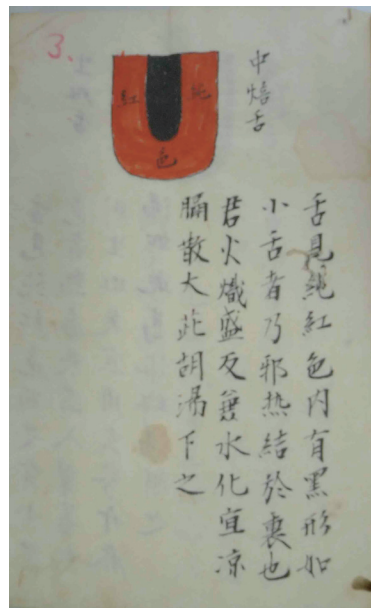 3.
中焙舌
純
紅
色
舌見純紅色内有黑形如
小舌者乃邪热結於裏也
君火熾盛反兼水化宜凉
膈散大茈胡湯下之